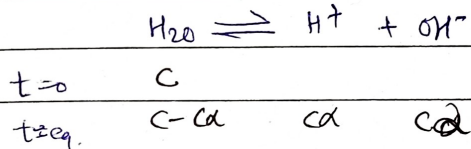 H₂O ⇌ H⁺ + OH⁻
t=0 C
t=eq. C-Cα Cα Cα